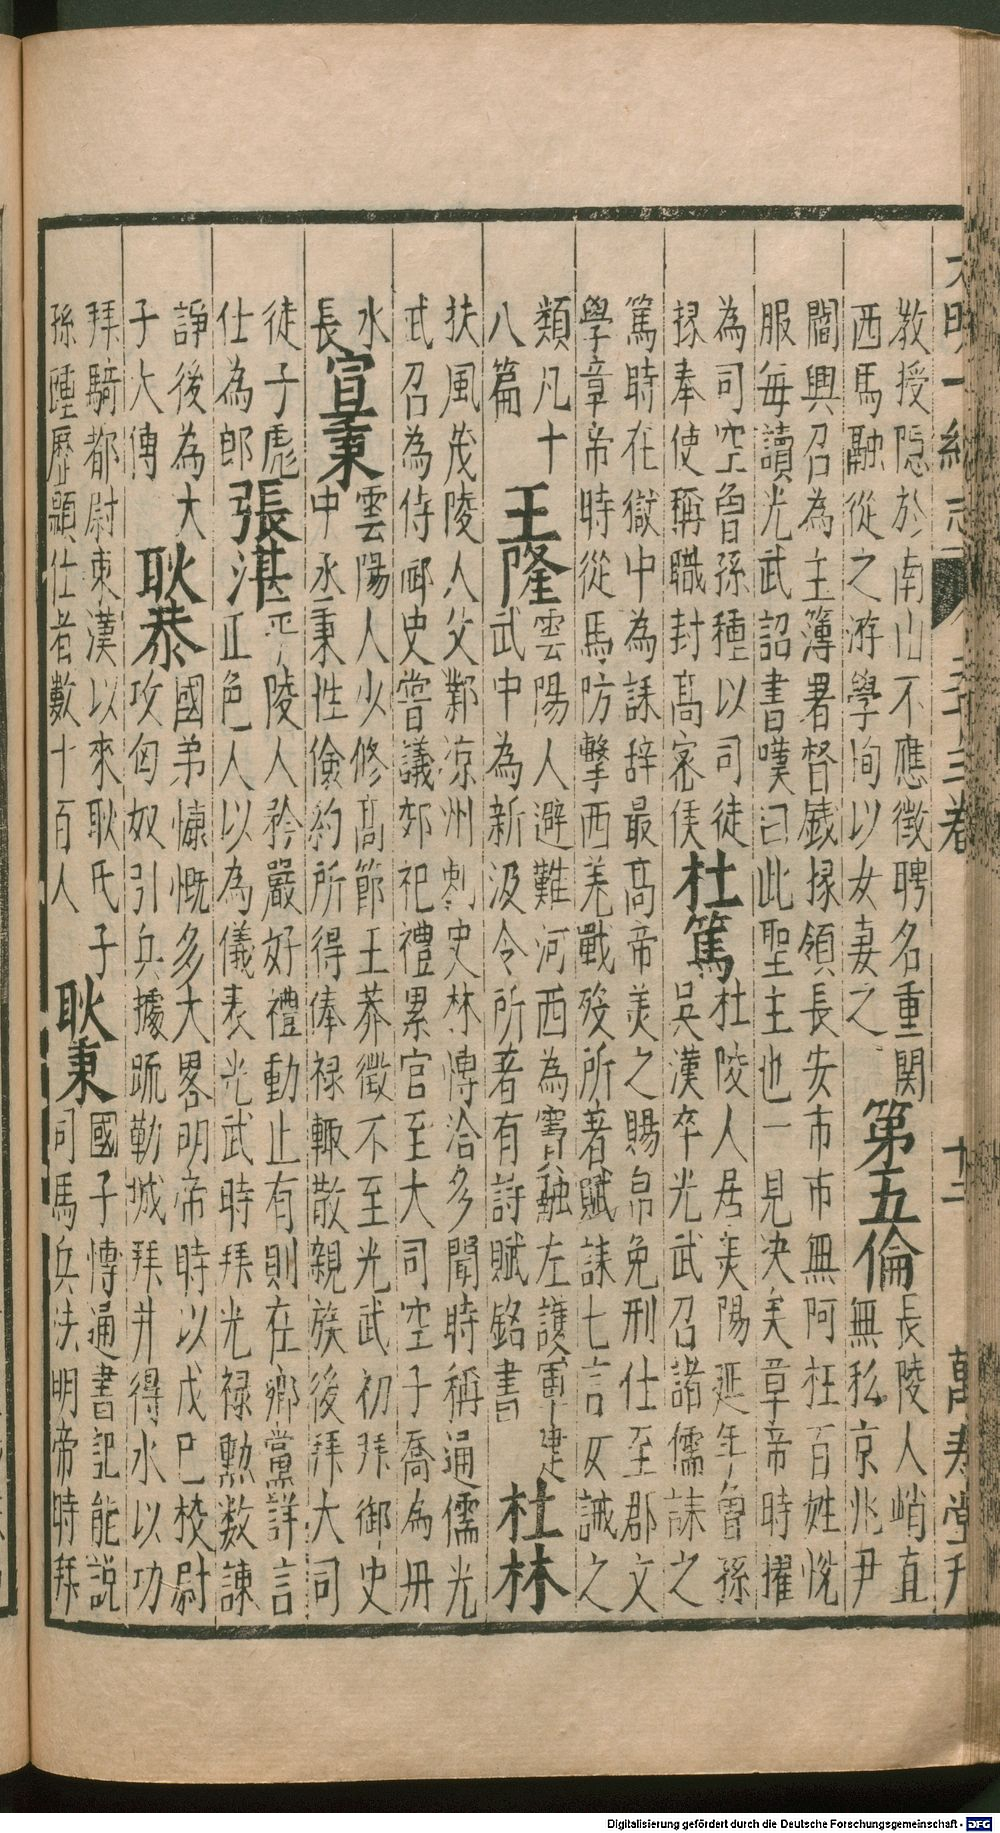 大明一統志 三十三卷 十二 萬寿堂刋
教授隠於南山不應徵聘名重関
西馬融從之游學恂以女妻之
第五倫
長陵人峭直
無私京兆尹
閻興召為主簿署督鋳掾領長安市市無阿枉百姓恱
服每讀光武詔書嘆曰此聖主也一見决矣章帝時擢
為司空曾孫種以司徒
掾奉使稱職封髙宻侯
杜篤
杜陵人居美陽延年曾孫
吳漢卒光武召諸儒誄之
篤時在獄中為誄辞最髙帝美之賜帛免刑仕至郡文
學章帝時從馬防擊西羌戰歿所著賦誄七言女誡之
類凡十
八篇
王隆
雲陽人避難河西為竇融左護軍建
武中為新汲令所著有詩賦銘書
杜林
扶風茂陵人父鄴凉州刺史林慱洽多聞時稱通儒光
武召為侍御史嘗議郊祀禮累官至大司空子喬為册
水
長
宣秉
雲陽人少修髙節王莽徵不至光武初拜御史
中丞秉性儉約所得俸禄輒散親族後拜大司
徒子彪
仕為郎
張湛
平陵人矜嚴好禮動止有則在鄉黨詳言
正色人以為儀表光武時拜光禄勲数諫
諍後為大
子大傅
耿恭
國弟慷慨多大畧明帝時以戊巳校尉
攻匈奴引兵據䟽勒城拜井得水以功
拜騎都尉東漢以來耿氏子
孫踵歷顯仕者數十百人
耿秉
國子慱通書記能説
司馬兵法明帝時拜
Digitalisierung gefördert durch die Deutsche Forschungsgemeinschaft - DFG